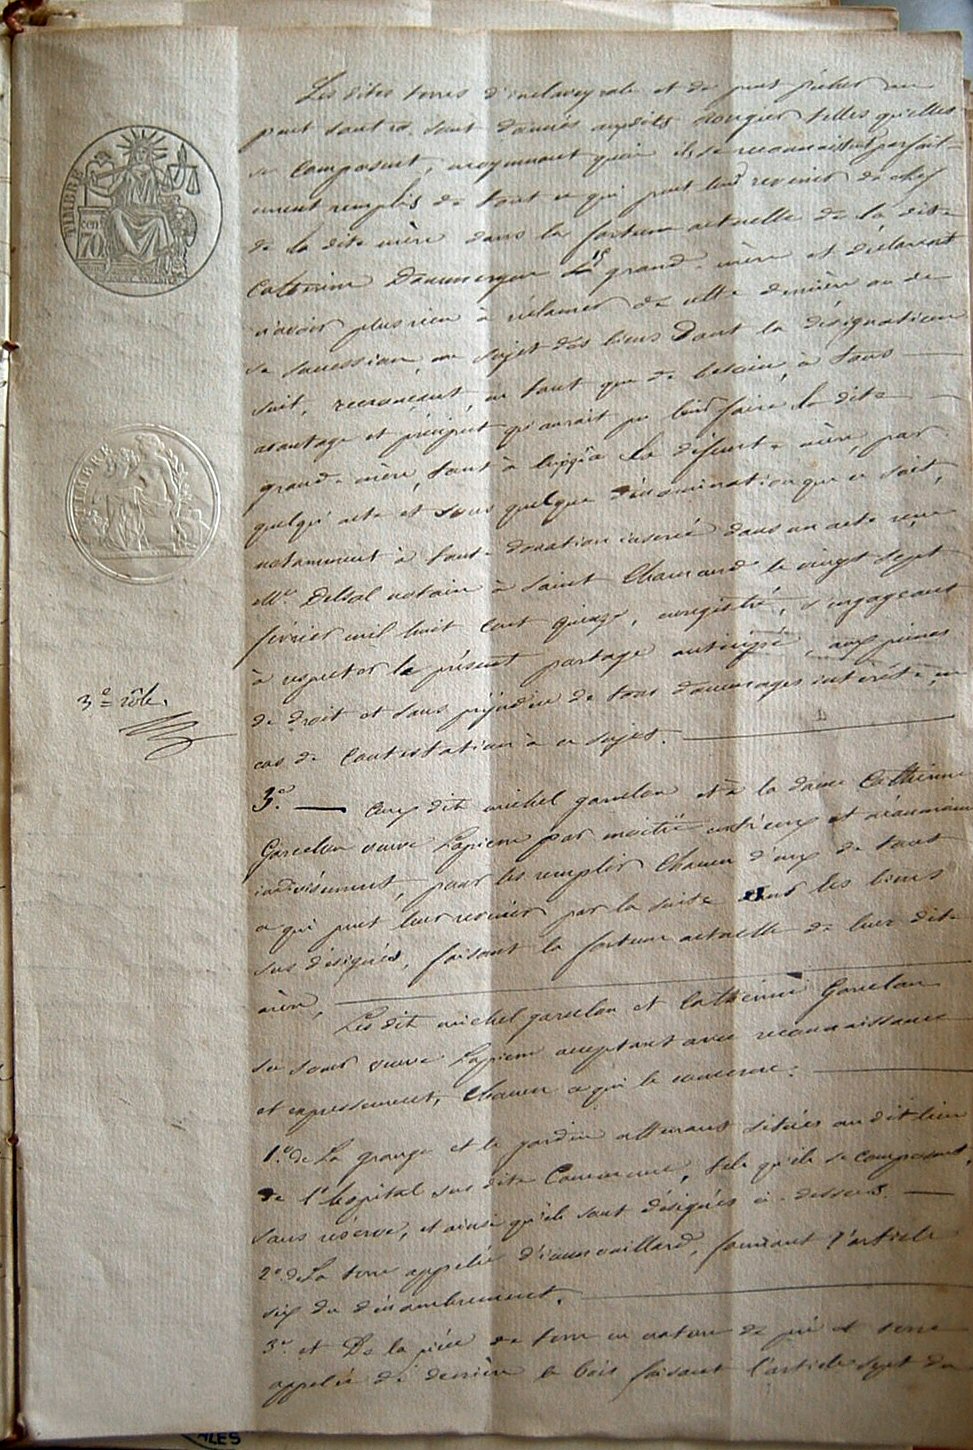 TIMBRE
70 cen
TIMBRE
3e rôle.
Les dites terres d' et de
puet sont donnés audits rougier telles qu'elles
se composent, moyennant quoi ils se reconnaissent parfait-
ement remplis de tout ce qui peut leur revenir de chef
de la dite mère dans la fortune actuelle de la dite
Catherine grand-mère et déclarent
n'avoir plus rien à réclamer de cette dernière ou de
sa succession, au sujet des biens dont la désignation
suit, renonçant, en tant que de besoin, à tous
avantage et préciput qu'aurait pu leur faire la dite
grand-mère, tant à la défunte mère, par
quelqu'acte et sous quelque dénomination que ce soit,
notamment à toute donation inserée dans un acte reçu
Me Delsal notaire à Saint Chamand le vingt sept
février mil huit cent quinze, enregistré, s'engageant
à respecter le présent partage anticipé, aux peines
de droit et sans préjudice de tous dommages intérêts, en
cas de contestation à ce sujet.
3.° Aux dits michel garcelon et à la dame Catherine
Garcelon veuve Lapiene par moitié entr'eux et néanmoins
indivisément, pour les remplir chacun d'eux de tout
ce qui peut leur revenir par la suite sur les biens
sus désignés, faisant la fortune actuelle de leur dite
mère,
Les dits michel garcelon et Catherine Garcelon
sa sœur veuve Lapiene acceptant avec reconnaissance
et expressément, chacun ce qui le concerne:
1.° de La grange et le jardin attenant situés au dit lieu
de l'hopital sus dite Commune, tels qu'ils se composent,
sans réserve, et ainsi qu'ils sont désignés ci-dessus.
2.° de La terre appelée, formant l'article
six du dénombrement.
3.° et De la pièce de terre en nature de pré et terre
appelée de derrière le bois faisant l'article sept du
ALES